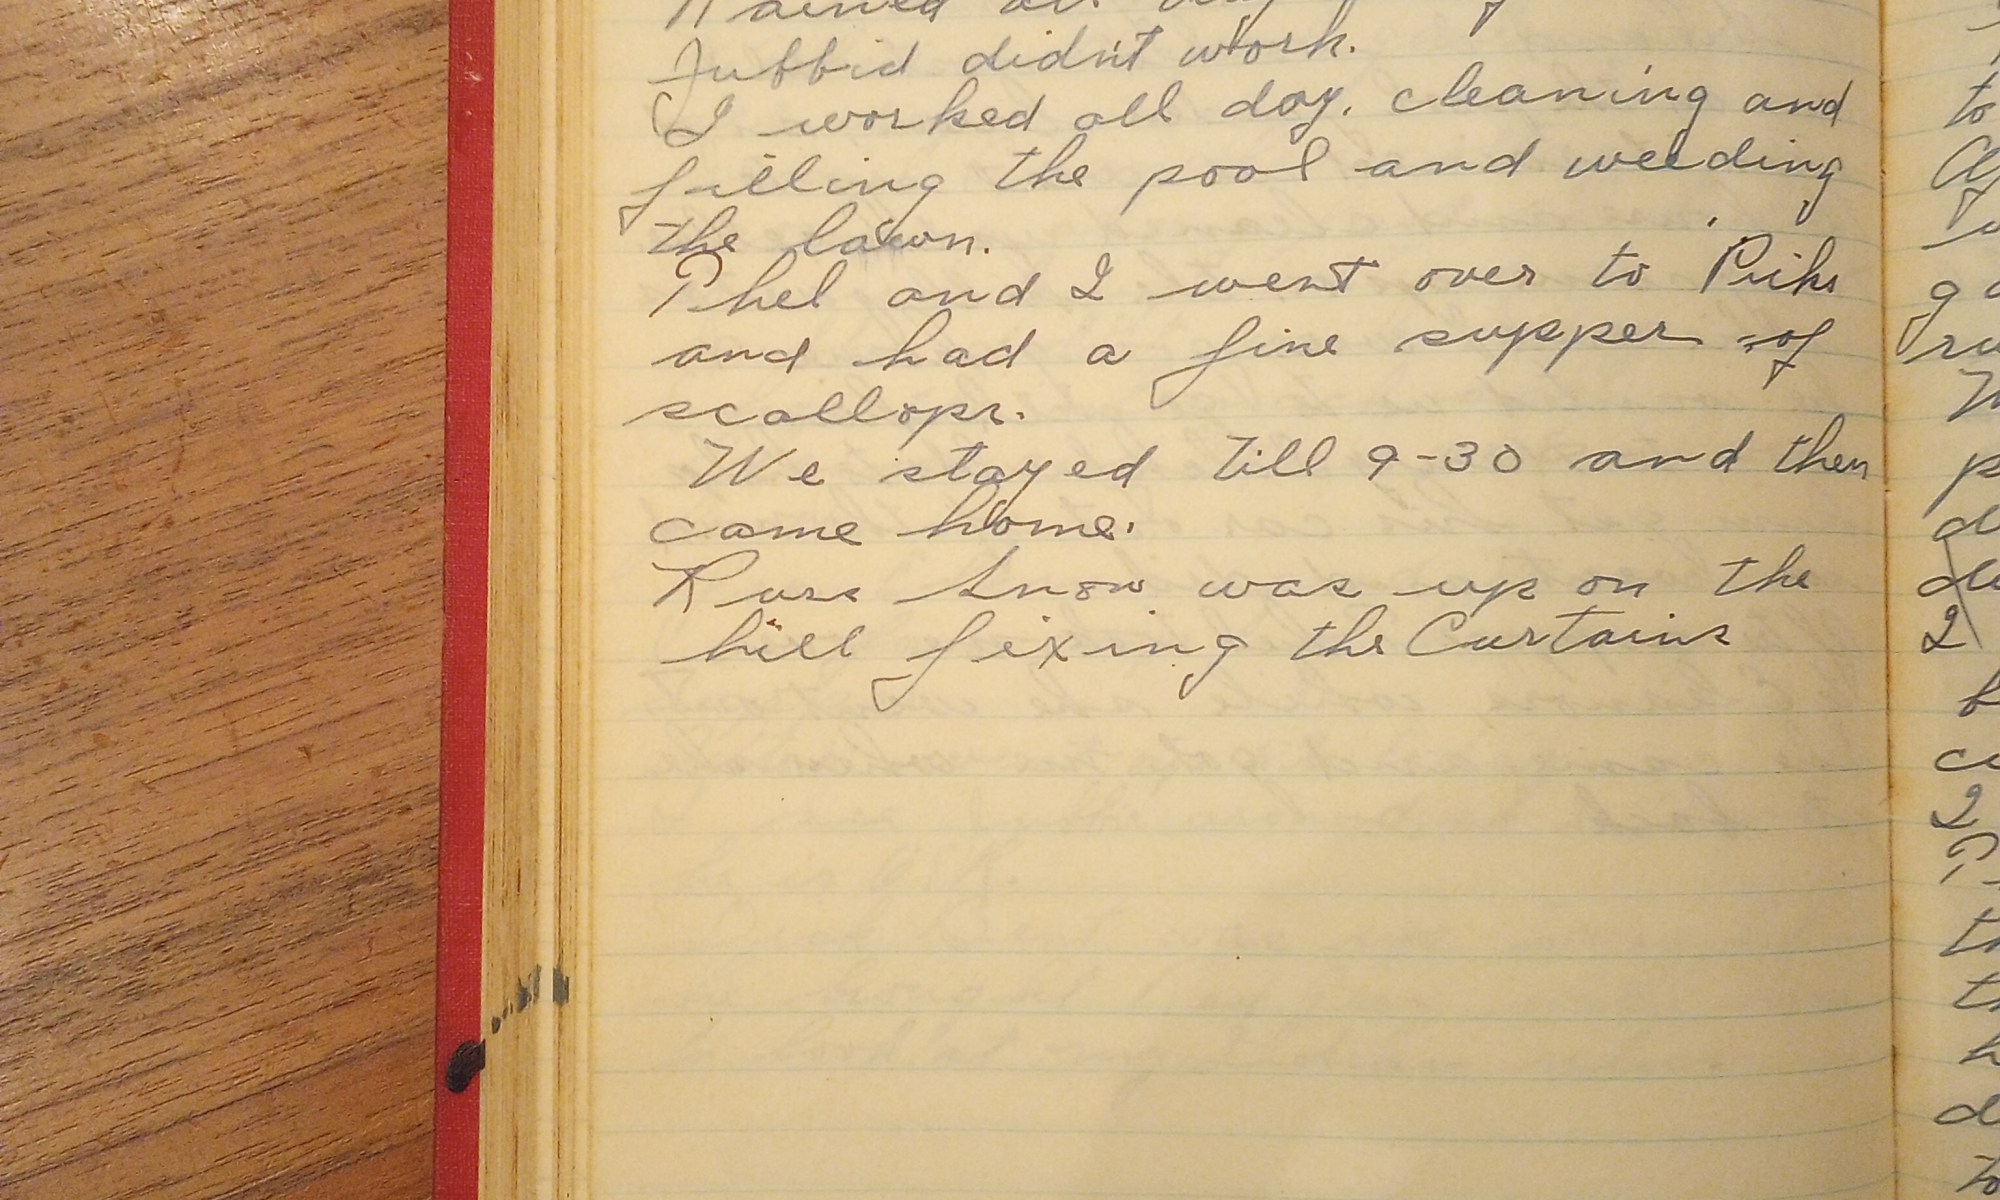 Rained all day
didn't work.
I worked all day. cleaning and
filling the pool and weeding
the lawn.
Phel and I went over to
and had a fine supper of
scallops.
We stayed till 9-30 and then
came home.
Russ Snow was up on the
hill fixing the Curtains
to
2
2